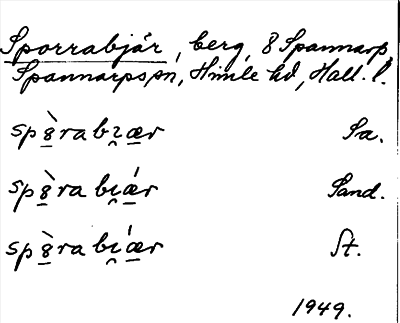 Sporrabjär, berg, 8 Spannarp,
Spannarps sn, Himle hd, Hall. l.
sp8̠̀rabɪ̯æ̠r Sa.
sp8̠̀rabɪ̯ǽ̠r Sand.
sp8̠̀rabɪ̯ǽ̠r St.
1949.